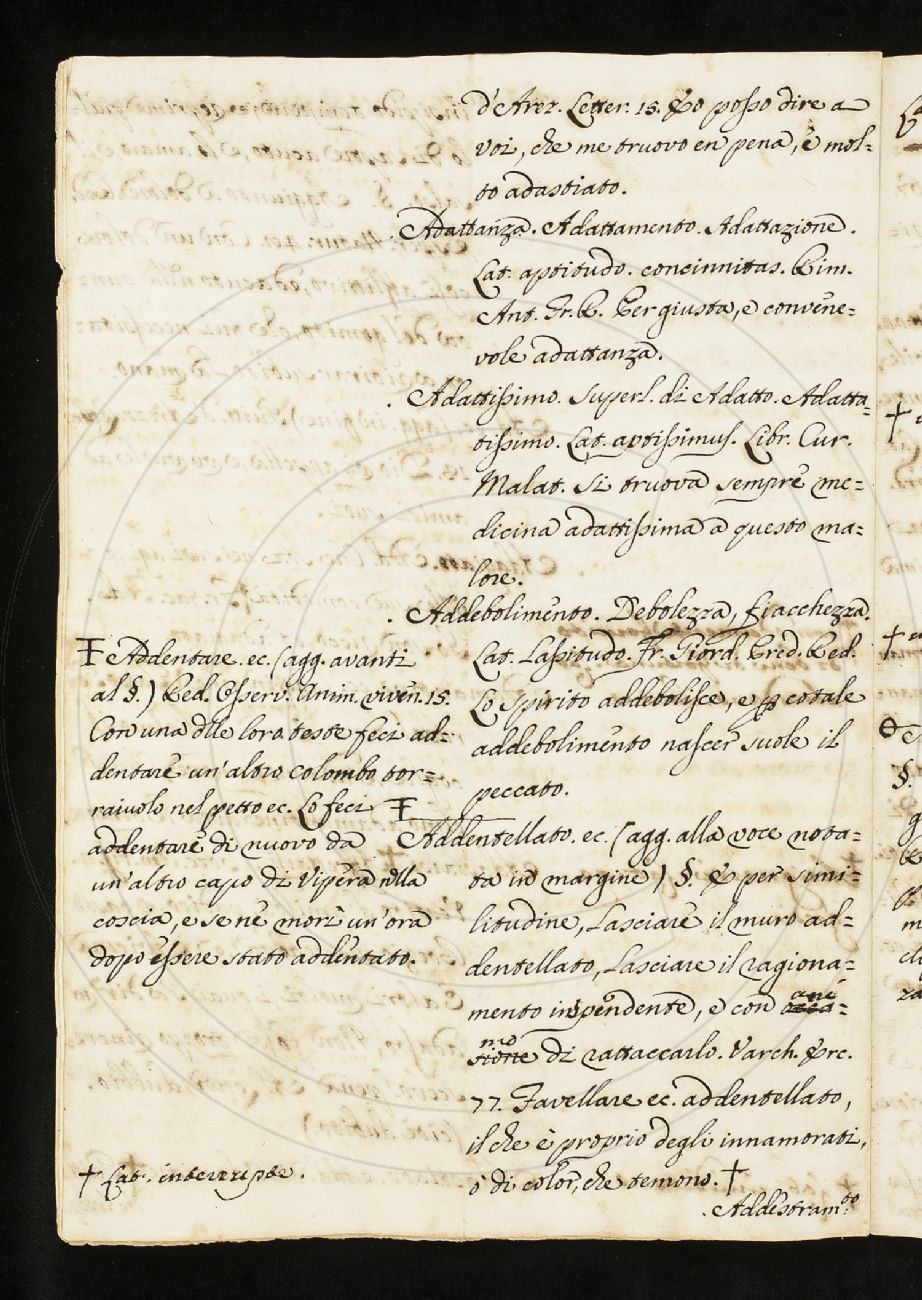 d'Arez. Letter. 15. Eo posso dire a
voi, che me truovo en pena, e mol=
to adastiato.
Adattanza. Adattamento. Adattazione.
Lat. aptitudo. concinnitas. Rim.
Ant. Fr. R. Per giusta, e convene=
vole adattanza.
Adattissimo. Superl. di Adatto. Adatta=
tissimo. Lat. aptissimus. Libr. Cur.
Malat. Si truova sempre me=
dicina adattissima a questo ma=
lore.
Addebolimento. Debolezza, fiacchezza.
Lat. Lassitudo. Fr. Giord. Pred. Red.
Lo spirito addebolisce, e p cotale
addebolimento nascer suole il
peccato.
Addentellato. ec. (agg. alla voce nota=
ta in margine) §. E per simi=
litudine, Lasciare il muro ad=
dentellato, Lasciare il ragiona=
mento in pendente, e con ani=
mo di rattaccarlo. Varch. Erc.
77. Favellare ec. addentellato,
il che è proprio degli innamorati,
o di color, che temono. †
Addestram.to
Ŧ Addentare. ec. (agg. avanti
al §.) Red. Osserv. Anim. viven. 15.
Con una dlle loro teste feci ad=
dentare un'altro colombo tor=
raiuolo nel petto ec. Lo feci Ŧ
addentare di nuovo da
un'altro capo di Vipera nlla
coscia, e se ne morì un'ora
dopo essere stato addentato.
† Lat. interrupte.